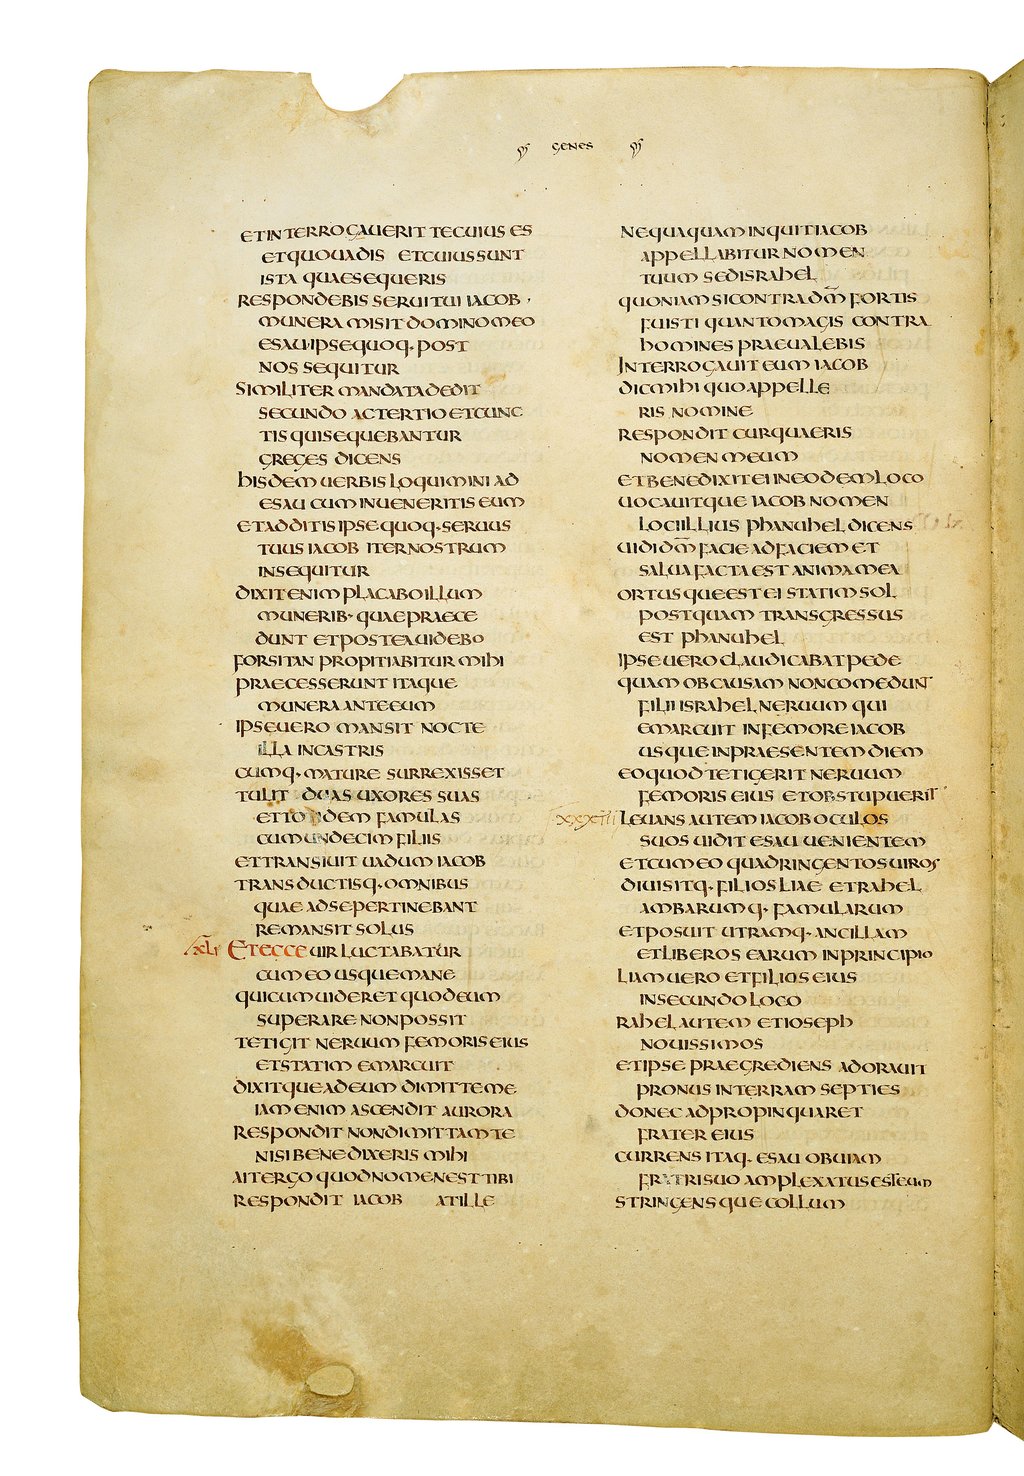 GENES
ET INTERROGAUERIT TE CUIUS ES
ET QUO UADIS ET CUIUS SUNT
ISTA QUAE SEQUERIS
RESPONDEBIS SERUI TUI IACOB ·
MUNERA MISIT DOMINO MEO
ESAU IPSE QUOQ· POST
NOS SEQUITUR
SIMILITER MANDATA DEDIT
SECUNDO AC TERTIO ET CUNC
TIS QUI SEQUEBANTUR
GREGES DICENS
HISDEM UERBIS LOQUIMINI AD
ESAU CUM INUENERITIS EUM
ET ADDITIS IPSE QUOQ· SERUUS
TUUS IACOB ITER NOSTRUM
INSEQUITUR
DIXIT ENIM PLACABO ILLUM
MUNERIB· QUAE PRAECE
DUNT ET POSTEA UIDEBO
FORSITAN PROPITIABITUR MIHI
PRAECESSERUNT ITAQUE
MUNERA ANTE EUM
IPSE UERO MANSIT NOCTE
ILLA IN CASTRIS
CUMQ· MATURE SURREXISSET
TULIT DUAS UXORES SUAS
ET TOTIDEM FAMULAS
CUM UNDECIM FILIIS
ET TRANSIUIT UADUM IACOB
TRANSDUCTISQ· OMNIBUS
QUAE AD SE PERTINEBANT
REMANSIT SOLUS
XLI ET ECCE UIR LUCTABATUR
CUM EO USQUE MANE
QUI CUM UIDERET QUOD EUM
SUPERARE NON POSSIT
TETIGIT NERUUM FEMORIS EIUS
ET STATIM EMARCUIT
DIXITQUE AD EUM DIMITTE ME
IAM ENIM ASCENDIT AURORA
RESPONDIT NON DIMITTAM TE
NISI BENEDIXERIS MIHI
AIT ERGO QUOD NOMEN EST TIBI
RESPONDIT IACOB AT ILLE
NEQUAQUAM INQUIT IACOB
APPELLABITUR NOMEN
TUUM SED ISRAHEL
QUONIAM SI CONTRA DM̅ FORTIS
FUISTI QUANTO MAGIS CONTRA
HOMINES PRAEUALEBIS
INTERROGAUIT EUM IACOB
DIC MIHI QUO APPELLE
RIS NOMINE
RESPONDIT CUR QUAERIS
NOMEN MEUM
ET BENEDIXIT EI IN EODEM LOCO
UOCAUITQUE IACOB NOMEN
LOCI ILLIUS PHANUHEL DICENS
UIDI DM̅ FACIE AD FACIEM ET
SALUA FACTA EST ANIMA MEA
ORTUSQUE EST EI STATIM SOL
POSTQUAM TRANSGRESSUS
EST PHANUHEL
IPSE UERO CLAUDICABAT PEDE
QUAM OB CAUSAM NON COMEDUNT
FILII ISRAHEL NERUUM QUI
EMARCUIT IN FEMORE IACOB
USQUE IN PRAESENTEM DIEM
EO QUOD TETIGERIT NERUUM
FEMORIS EIUS ET OBSTUPUERIT
XXXIII LEUANS AUTEM IACOB OCULOS
SUOS UIDIT ESAU UENIENTEM
ET CUM EO QUADRINGENTOS UIROS
DIUISITQ· FILIOS LIAE ET RAHEL
AMBARUMQ· FAMULARUM
ET POSUIT UTRAMQ· ANCILLAM
ET LIBEROS EARUM IN PRINCIPIO
LIAM UERO ET FILIOS EIUS
IN SECUNDO LOCO
RAHEL AUTEM ET IOSEPH
NOUISSIMOS
ET IPSE PRAEGREDIENS ADORAUIT
PRONUS IN TERRAM SEPTIES
DONEC ADPROPINQUARET
FRATER EIUS
CURRENS ITAQ· ESAU OBUIAM
FRATRI SUO AMPLEXATUS EST EUM
STRINGENSQUE COLLUM